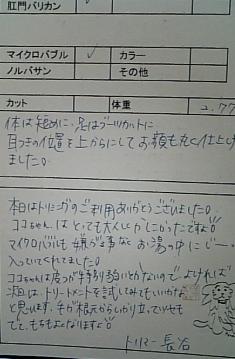 肛門バリカン
マイクロバブル ✓ カラー
ノルバサン その他
カット 体重 2.77
体は短めに、足はブーツカットに
耳つきの位置を上からにしてお顔も丸く仕上げ
ました♪
本日はトリミングのご利用ありがとうございました♪
ココちゃんはとっても大人しかしこかったですよ♪
マイクロバブルも嫌がる事なくお湯の中にじーっと
入っていてくれてました♪
ココちゃんは皮フが特別弱いとかないので、よければ
次回は、トリートメントを試してみてもいいかな
と思います。毛が根元からしっかり立っていせも
でて、もちもよくなりますよ♪
トリマー 長谷